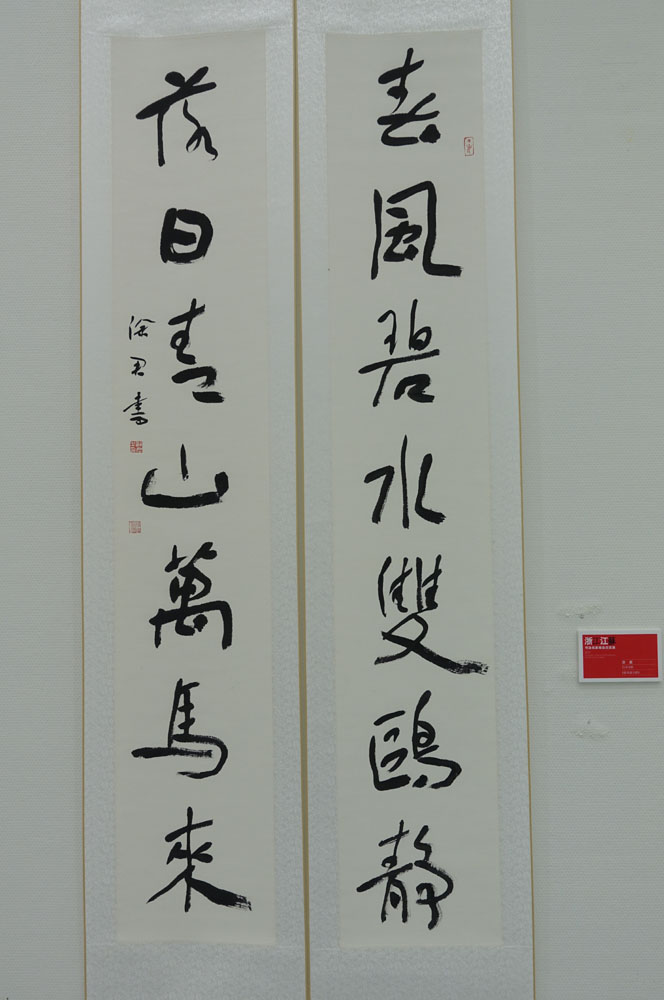 春風碧水雙鷗静
落日青山萬馬來
徐君書
浙江